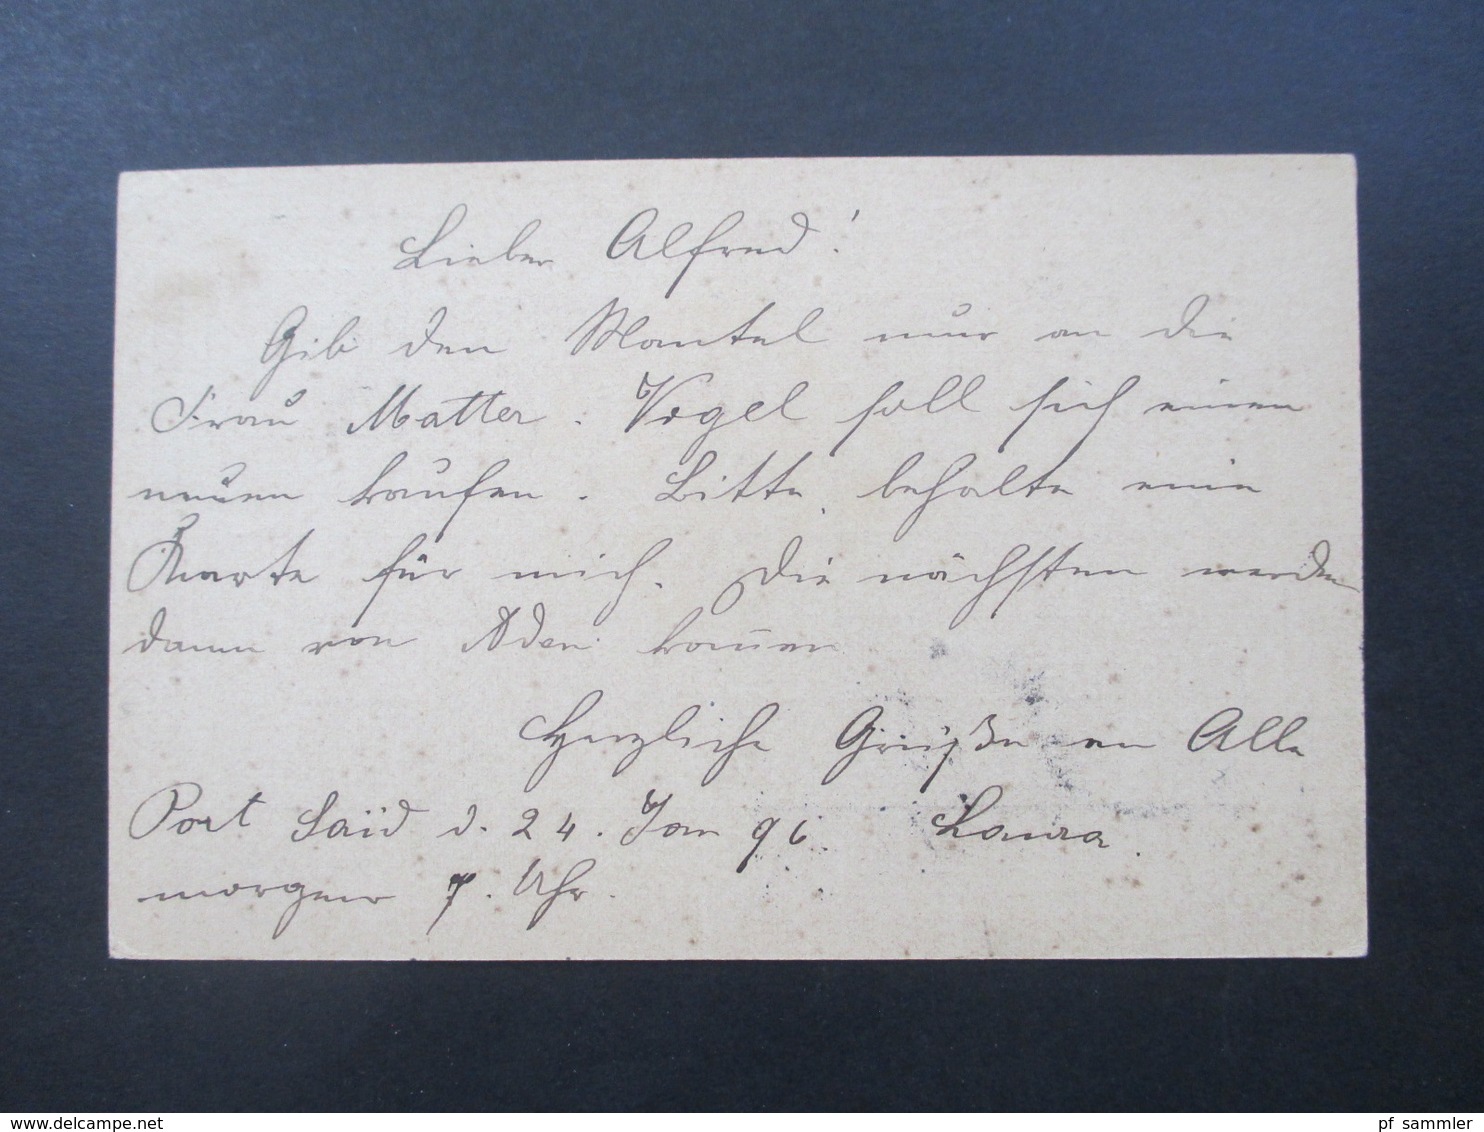 Lieber Alfred!
Gib den Mantel nur an die
Frau Matter. Vogel soll sich einen
neuen kaufen. Bitte behalte eine
Karte für mich. Die nächsten werden
dann von Aden kom̄en
Herzliche Grüße an Alle
Port Saïd d. 24. Jan 96. Laura.
morgens 7. Uhr.
pf_sammler